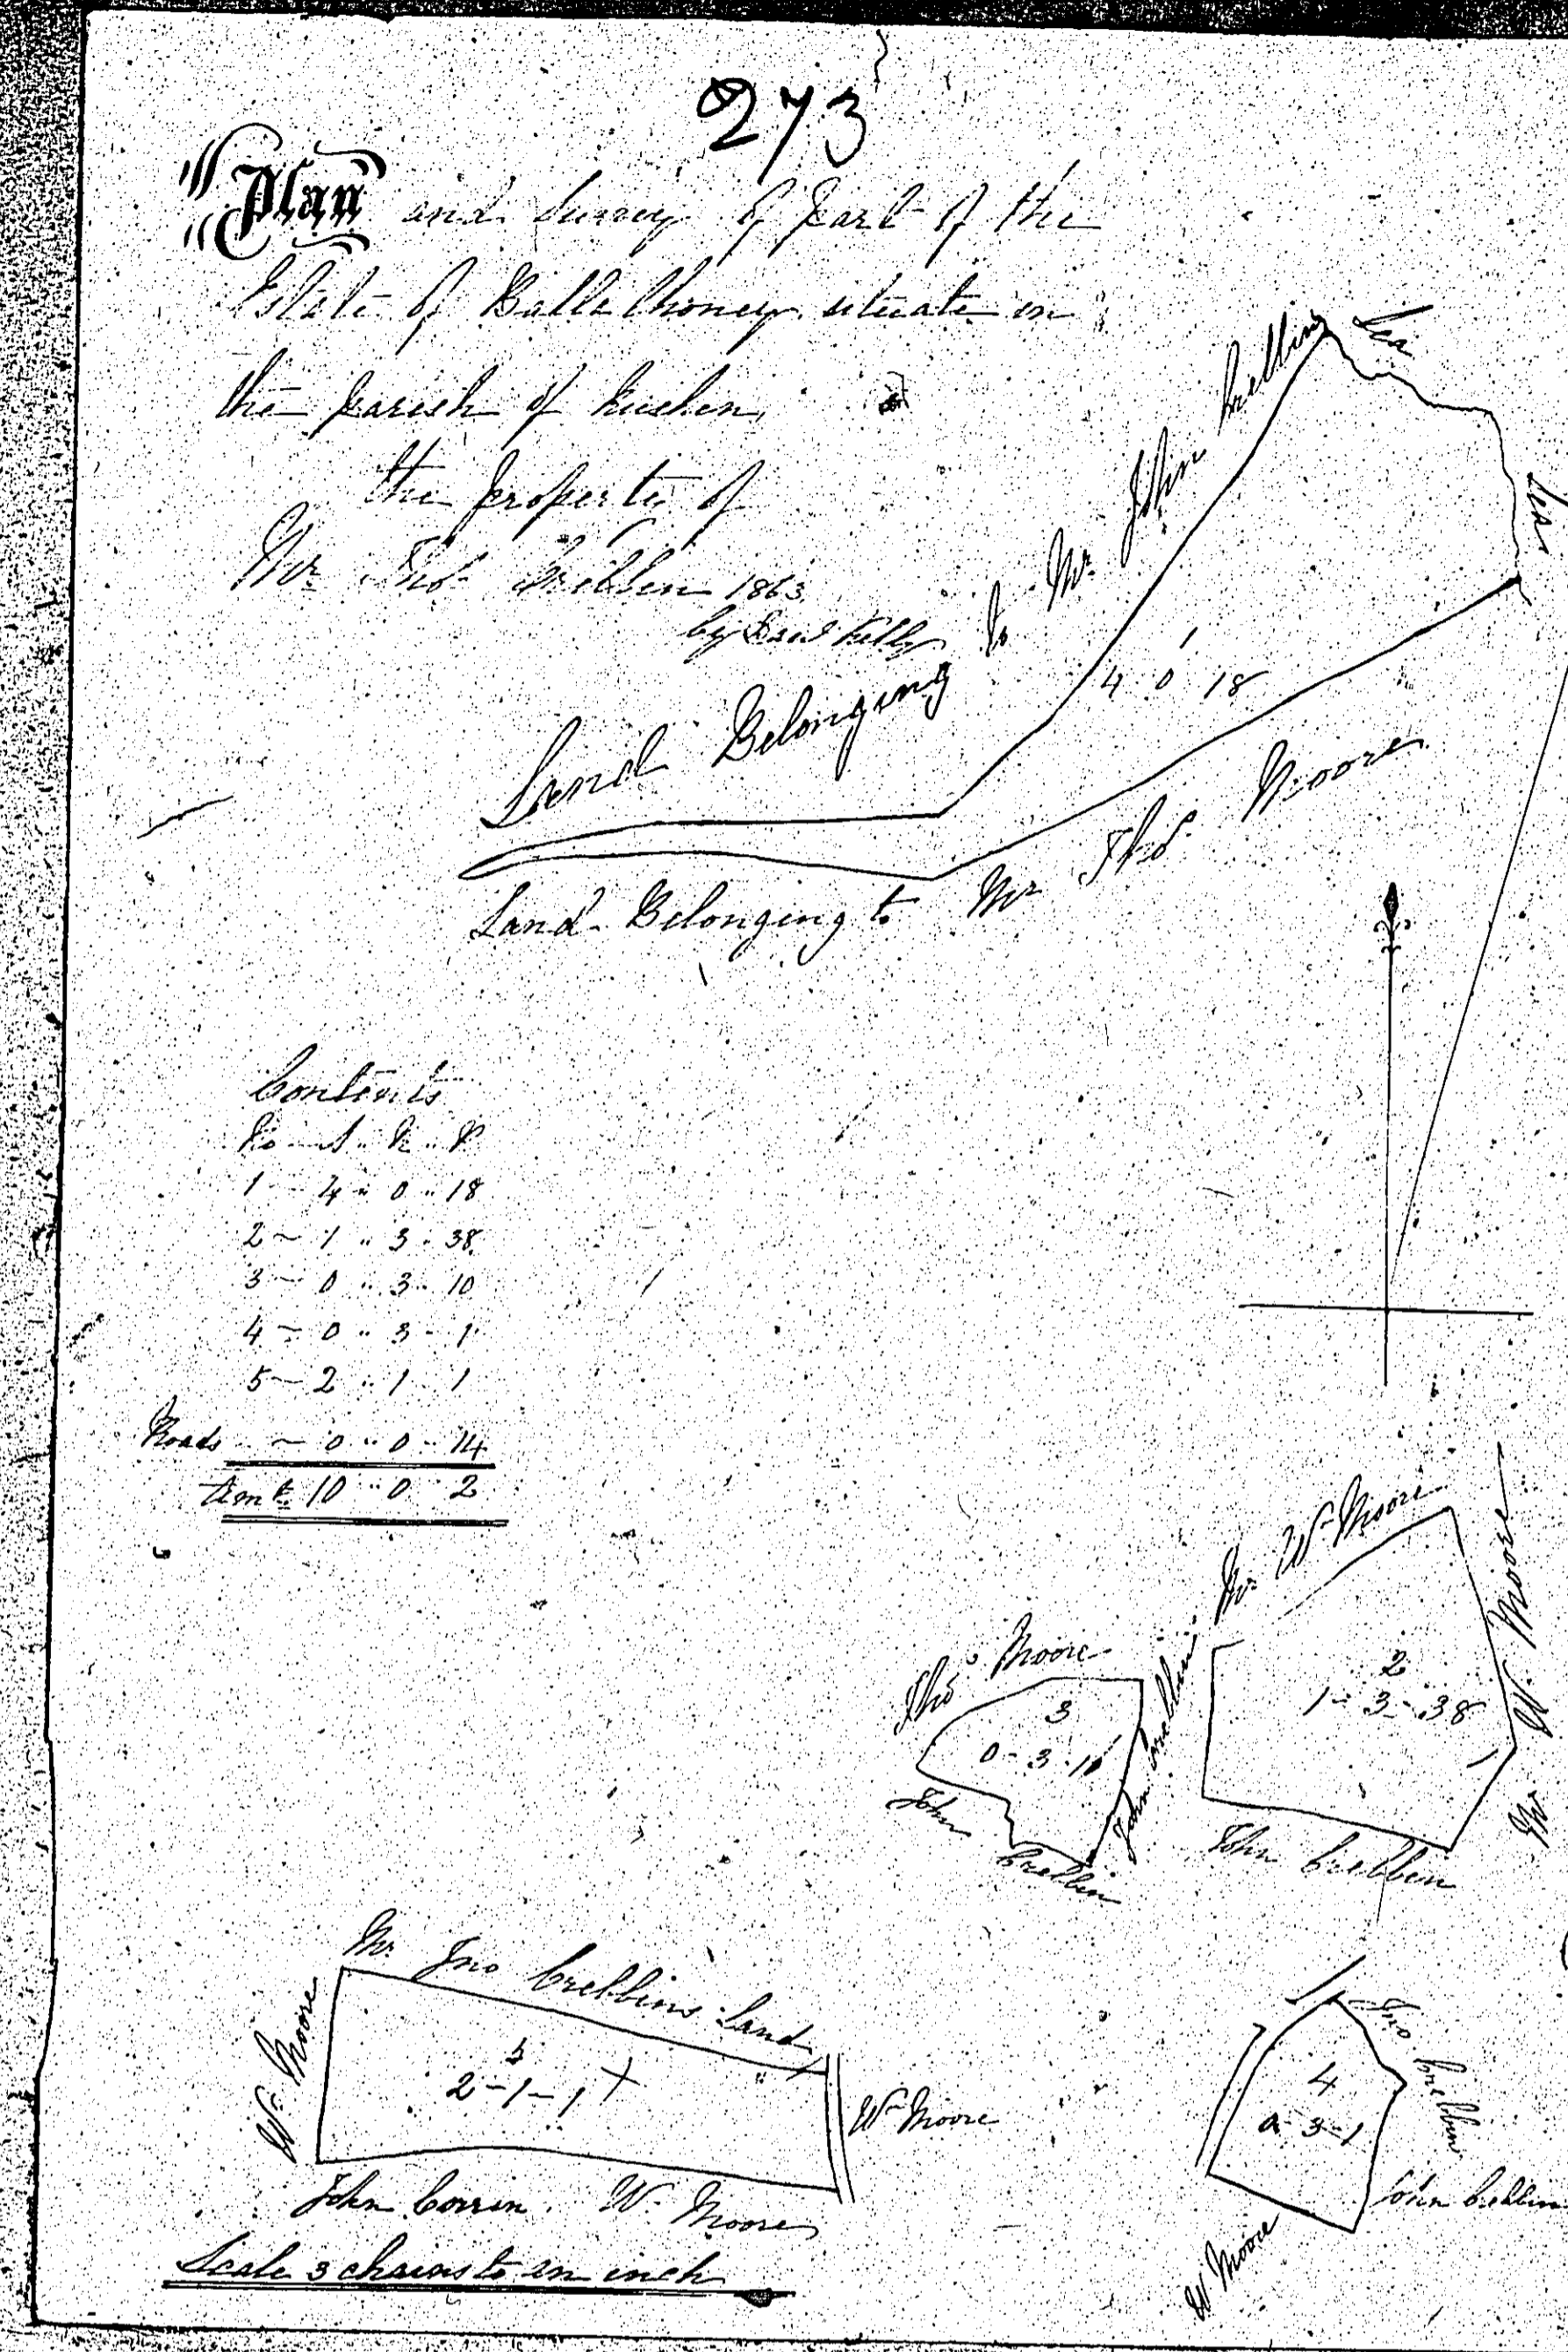 273
Plan and Survey of part of the
Estate of Balla Choney situate in
the parish of Rushen
the property of
Mr Thos Crebbin 1863
by Kelly
Land Belonging to Mr John Crebbin
Sea
Sea
1
4 0 18
Land Belonging to Mr Thos Moore
Contents
No A R P
1 4 0 18
2 1 3 38
3 0 3 10
4 0 3 1
5 2 1 1
Roads 0 0 14
Amt 10 0 2
Mr Wm Moore
Mr W. Moore
2
1 - 3 - 38
John Crebbin
Thos Moore
3
0 - 3 - 10
John Crebbin
John Crebbin
Mr Jno Crebbins Land
Wm Moore
5
2 - 1 - 1
Wm Moore
John Corrin W. Moore
Jno Crebbin
4
0 - 3 - 1
John Crebbin
W Moore
Scale 3 chains to an inch